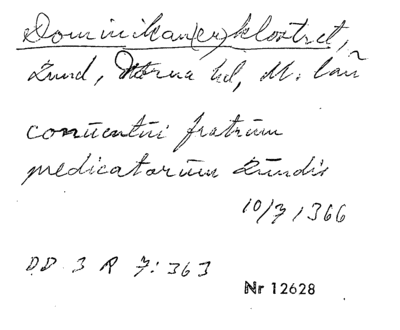 Dominikan(er)klostret,
Lund, Norra Hd, M. län
conuentui fratrum
predicatorum Lundis
10/7 1366
DD 3 R 7:363
Nr 12628